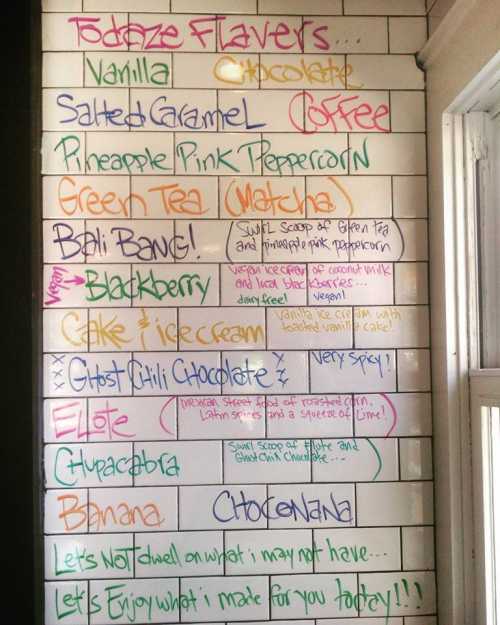 Todaze Flavers...
Vanilla Chocolate
Salted Caramel Coffee
Pineapple Pink Peppercorn
Green Tea (Matcha)
Bali BANG! (Swirl scoop of Green tea
and pineapple pink peppercorn)
Vegan → Blackberry vegan ice cream of coconut milk
and local blackberries...
dairy free! vegan!
Cake & ice cream vanilla ice cream with
toasted vanilla cake!
xxx Ghost Chili Chocolate xxx very spicy!
Elote (mexican street food of roasted corn,
Latin spices and a squeeze of Lime!)
Chupacabra Swirl Scoop of Elote and
Ghost Chili Chocolate...)
Banana CHOCONANA
Let's NOT dwell on what i may not have...
Let's Enjoy what i made for you today!!!